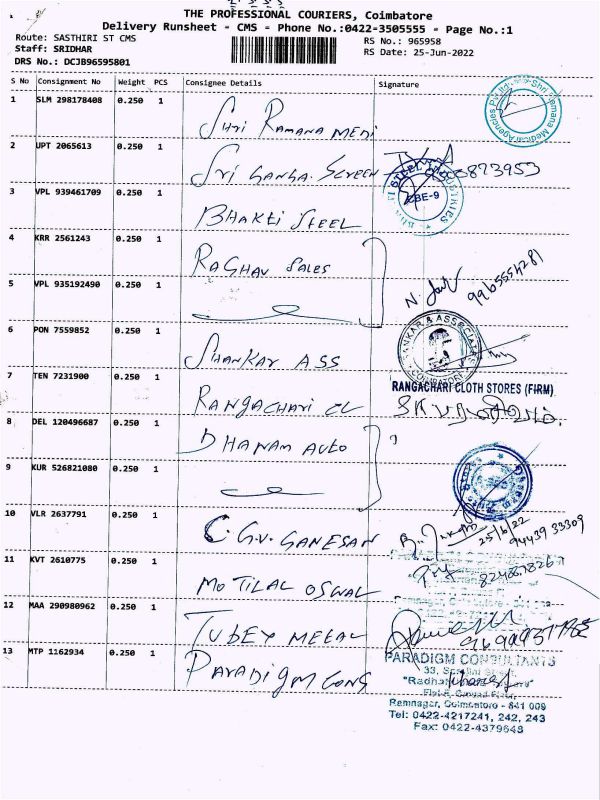 THE PROFESSIONAL COURIERS, Coimbatore
Delivery Runsheet - CMS - Phone No.:0422-3505555 - Page No.:1
Route: SASTHIRI ST CMS
Staff: SRIDHAR
DRS No.: DCJB96595801
RS No.: 965958
RS Date: 25-Jun-2022
S No Consignment No Weight PCS Consignee Details Signature
1 SLM 298178408 0.250 1 Shri Ramana Medi
2 UPT 2065613 0.250 1 Sri Ganga Screen
3 VPL 939461709 0.250 1 Bhakti Steel
CBE-9
4 KRR 2561243 0.250 1 Raghav Sales
5 VPL 935192490 0.250 1
9965554281
6 PON 7559852 0.250 1 Shankar Ass
RANGACHARI CLOTH STORES (FIRM)
7 TEN 7231900 0.250 1 Rangachari CL
8 DEL 120496687 0.250 1 Dhanam Auto
9 KUR 526821080 0.250 1
10 VLR 2637791 0.250 1 C.G.V. Ganesan
25/6/22
94439 33309
11 KVT 2610775 0.250 1 Motilal Oswal
12 MAA 290980962 0.250 1 Tubey Metal
13 MTP 1162934 0.250 1 Paradigm Cons
PARADIGM CONSULTANTS
Ramnagar, Coimbatore - 641 009
Tel: 0422-4217241, 242, 243
Fax: 0422-4379648